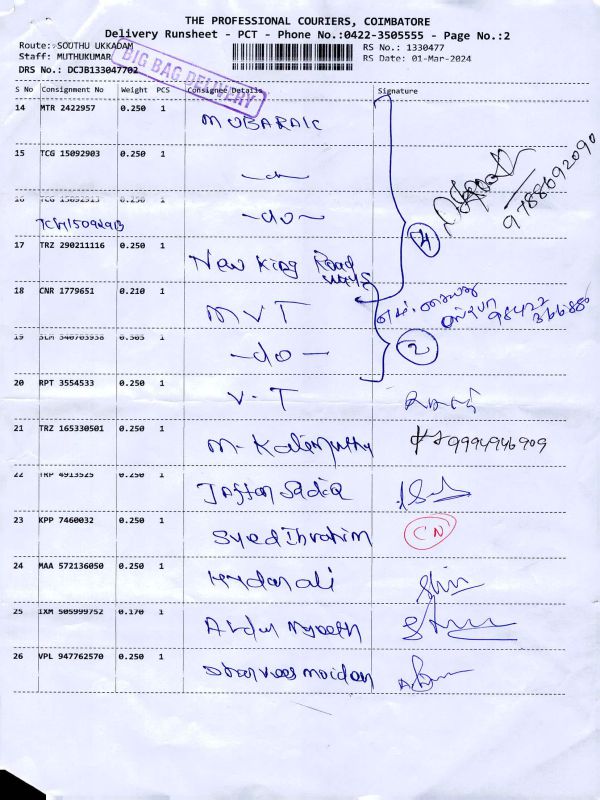 THE PROFESSIONAL COURIERS, COIMBATORE
Delivery Runsheet - PCT - Phone No.:0422-3505555 - Page No.:2
Route: SOUTHU UKKADAM
RS No.: 1330477
Staff: MUTHUKUMAR
RS Date: 01-Mar-2024
DRS No.: DCJB133047702
BIG BAG DELIVERY
S No Consignment No Weight PCS Consignee Details Signature
14 MTR 2422957 0.250 1 MUBARAIC
15 TCG 15092903 0.250 1
16 TCG 15092913 0.250 1 -do-
TCG15092913
9788692090
4
17 TRZ 290211116 0.250 1 New King Road ways
18 CNR 1779651 0.210 1 MVT
98422 366880
19 SLM 540703938 0.505 1 -do-
2
20 RPT 3554533 0.250 1 V.T
21 TRZ 165330501 0.250 1 M. Kalimuthu 9994946909
22 TRP 4913525 0.250 1 Jaffar Sadiq
23 KPP 7460032 0.250 1 Syed Ibrahim CN
24 MAA 572136050 0.250 1 Hydar ali
25 IXM 505999752 0.170 1 Abdul
26 VPL 947762570 0.250 1 moiden